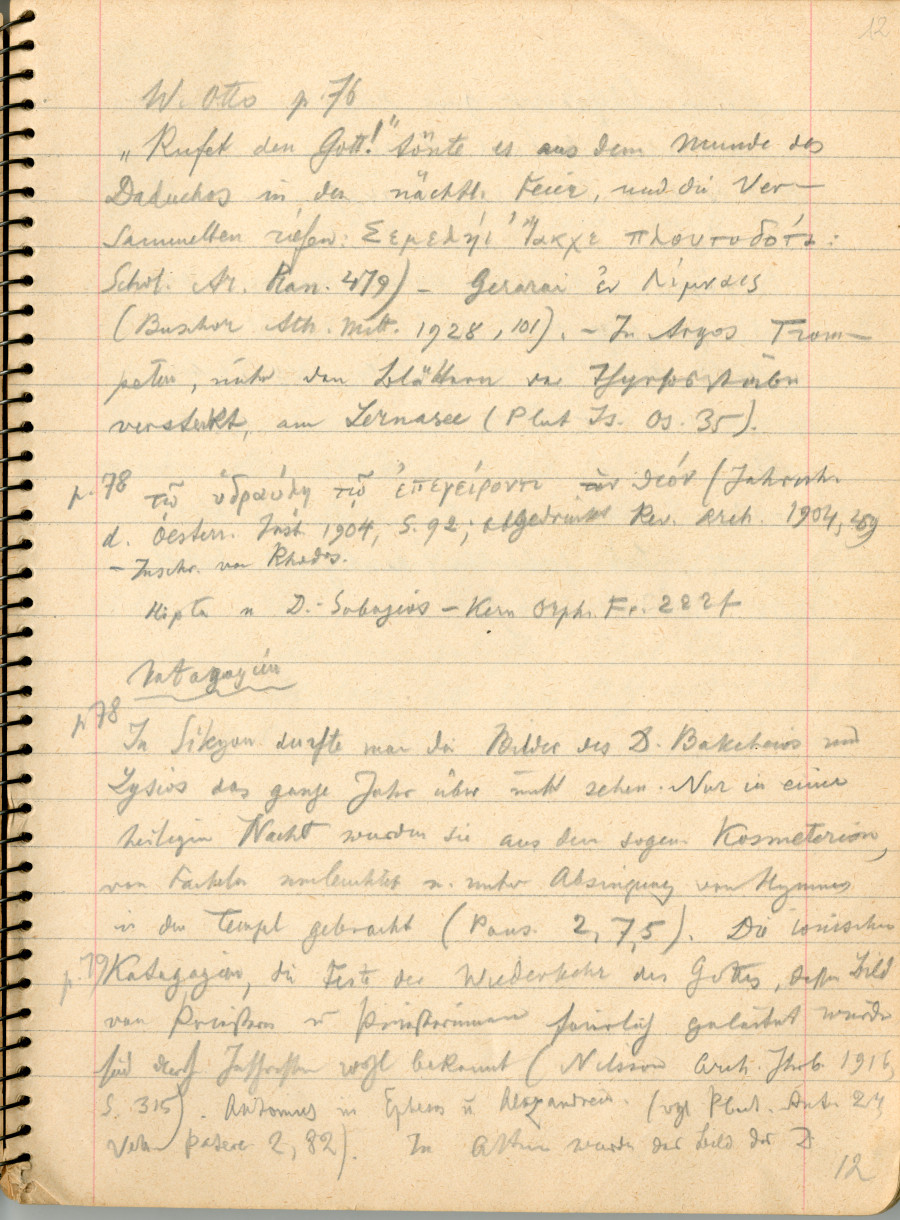 12
W. Otto p. 76
„Rufet den Gott!" tönte es aus dem Munde des
Daduchos in der nächtl. Feier, und die Ver-
sammelten riefen: Σεμελήι' Ἴακχε πλουτοδότα:
Schol. Ar. Ran. 479) – Gerarai ἐν Λίμναις
(Buschor Ath. Mitt. 1928, 101). – In Argos Trom-
peten, unter den Blättern der Thyrsosstäbe
versteckt, am Lernasee (Plut Is. Os. 35).
p. 78 τῷ ὑδραύλῃ τῷ ἐπεγείροντι τὸν θεόν (Jahresh.
d. Oesterr. Inst. 1904, S. 92; abgedruckt Rev. arch. 1904, 459)
– Inschr. von Rhodos.
Hipta u D.-Sabazios – Kern Orph. Fr. 222 f
Katagogien
p 78
In Sikyon durfte man die Bilder des D. Bakcheios und
Lysios das ganze Jahr über nicht sehen. Nur in einer
heiligen Nacht wurden sie aus dem sogen. Kosmeterion,
von Fackeln umleuchtet u. unter Absingung von Hymnen
in den Tempel gebracht (Paus. 2,7,5). Die ionischen
p. 79 Katagogien, die Feste der Wiederkehr des Gottes, dessen Bild
von Priestern u Priesterinnen feierlich geleitet wurde
sind durch Inschriften wohl bekannt (Nilsson Arch. Jhrb. 1916,
S. 315). Antonius in Ephesos u Alexandreia. (vgl Plut. Ant. 24,
Vell. Paterc 2, 82). In Athen wurde das Bild des D
12